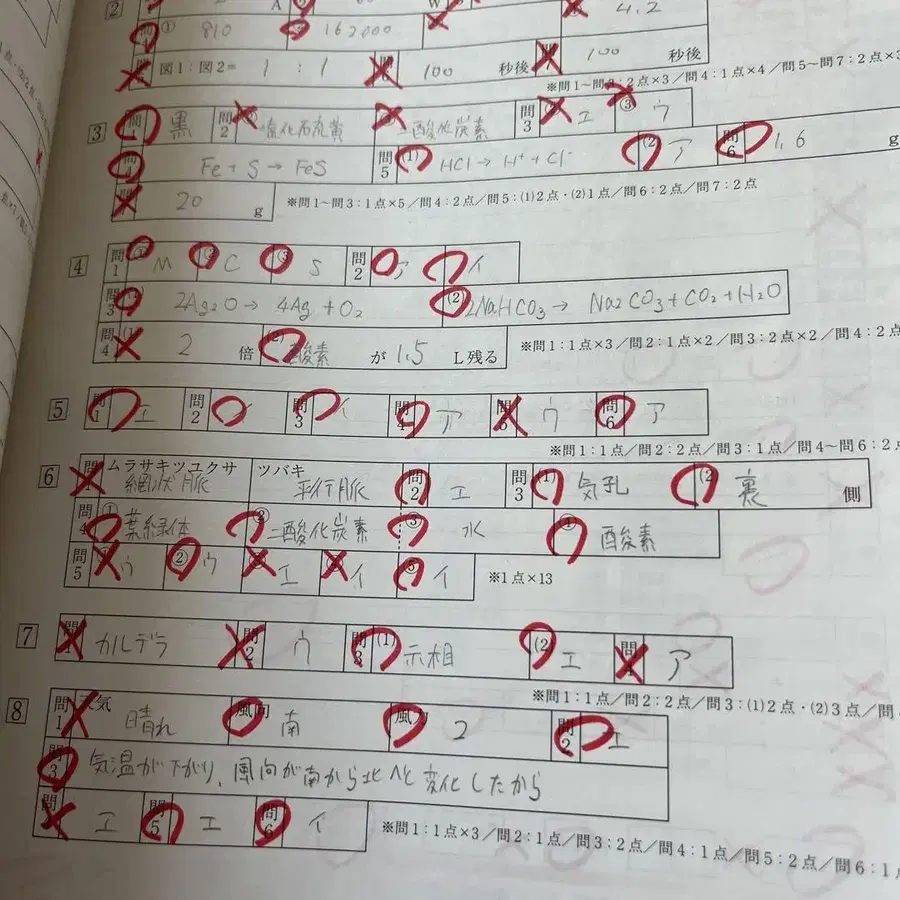 2 A W
① 810 ② 162000 4.2
図1：図2＝ 1 : 1 100 秒後 100 秒後
※問1～問3：2点×3／問4：1点×4／問5～問7：2点×3
3 問1 黒 問2 硫化石流黄 二酸化炭素 問3 エ ③ ウ
Fe + S → FeS 問5 (1) HCl → H⁺ + Cl⁻ (2) ア 問6 1.6 g
20 g ※問1～問3：1点×5／問4：2点／問5：(1)2点・(2)1点／問6：2点／問7：2点
4 問1 ① M ② C ③ S 問2 ア イ
問3 (1) 2Ag₂O → 4Ag + O₂ (2) 2NaHCO₃ → Na₂CO₃ + CO₂ + H₂O
問4 (1) 2 倍 (2) 酸素 が 1.5 L残る ※問1：1点×3／問2：1点×2／問3：2点×2／問4：2点
5 問1 エ 問2 イ 問3 イ 問4 ア 問5 ウ 問6 ア
※問1：1点／問2：2点／問3：1点／問4～問6：2点
6 問1 ムラサキツユクサ 網状脈 ツバキ 平行脈 問2 エ 問3 (1) 気孔 (2) 裏 側
問4 ① 葉緑体 ② 二酸化炭素 ③ 水 ④ 酸素
問5 ウ ② ウ エ イ ⑤ イ ※1点×13
7 カルデラ 問2 ウ 問3 (1) 示相 (2) エ 問 ア
※問1：1点／問2：2点／問3：(1)2点・(2)3点／問
8 問1 天気 晴れ 風向 南 風力 2 問2 エ
問3 気温が下がり、風向が南から北へと変化したから
問 エ 問5 エ 問6 イ ※問1：1点×3／問2：1点／問3：2点／問4：1点／問5：2点／問6：1点